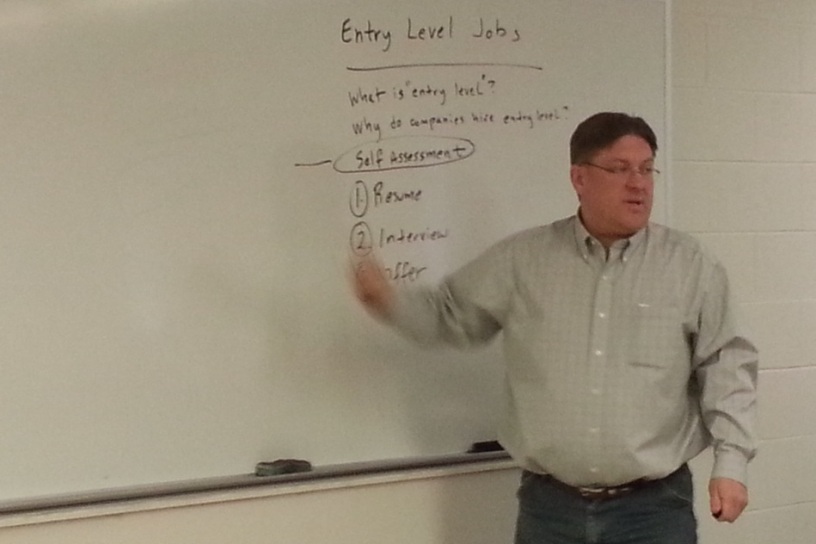 Entry Level Jobs
What is "entry level"?
Why do companies hire entry level?
Self Assessment
1. Resume
2. Interview
Offer